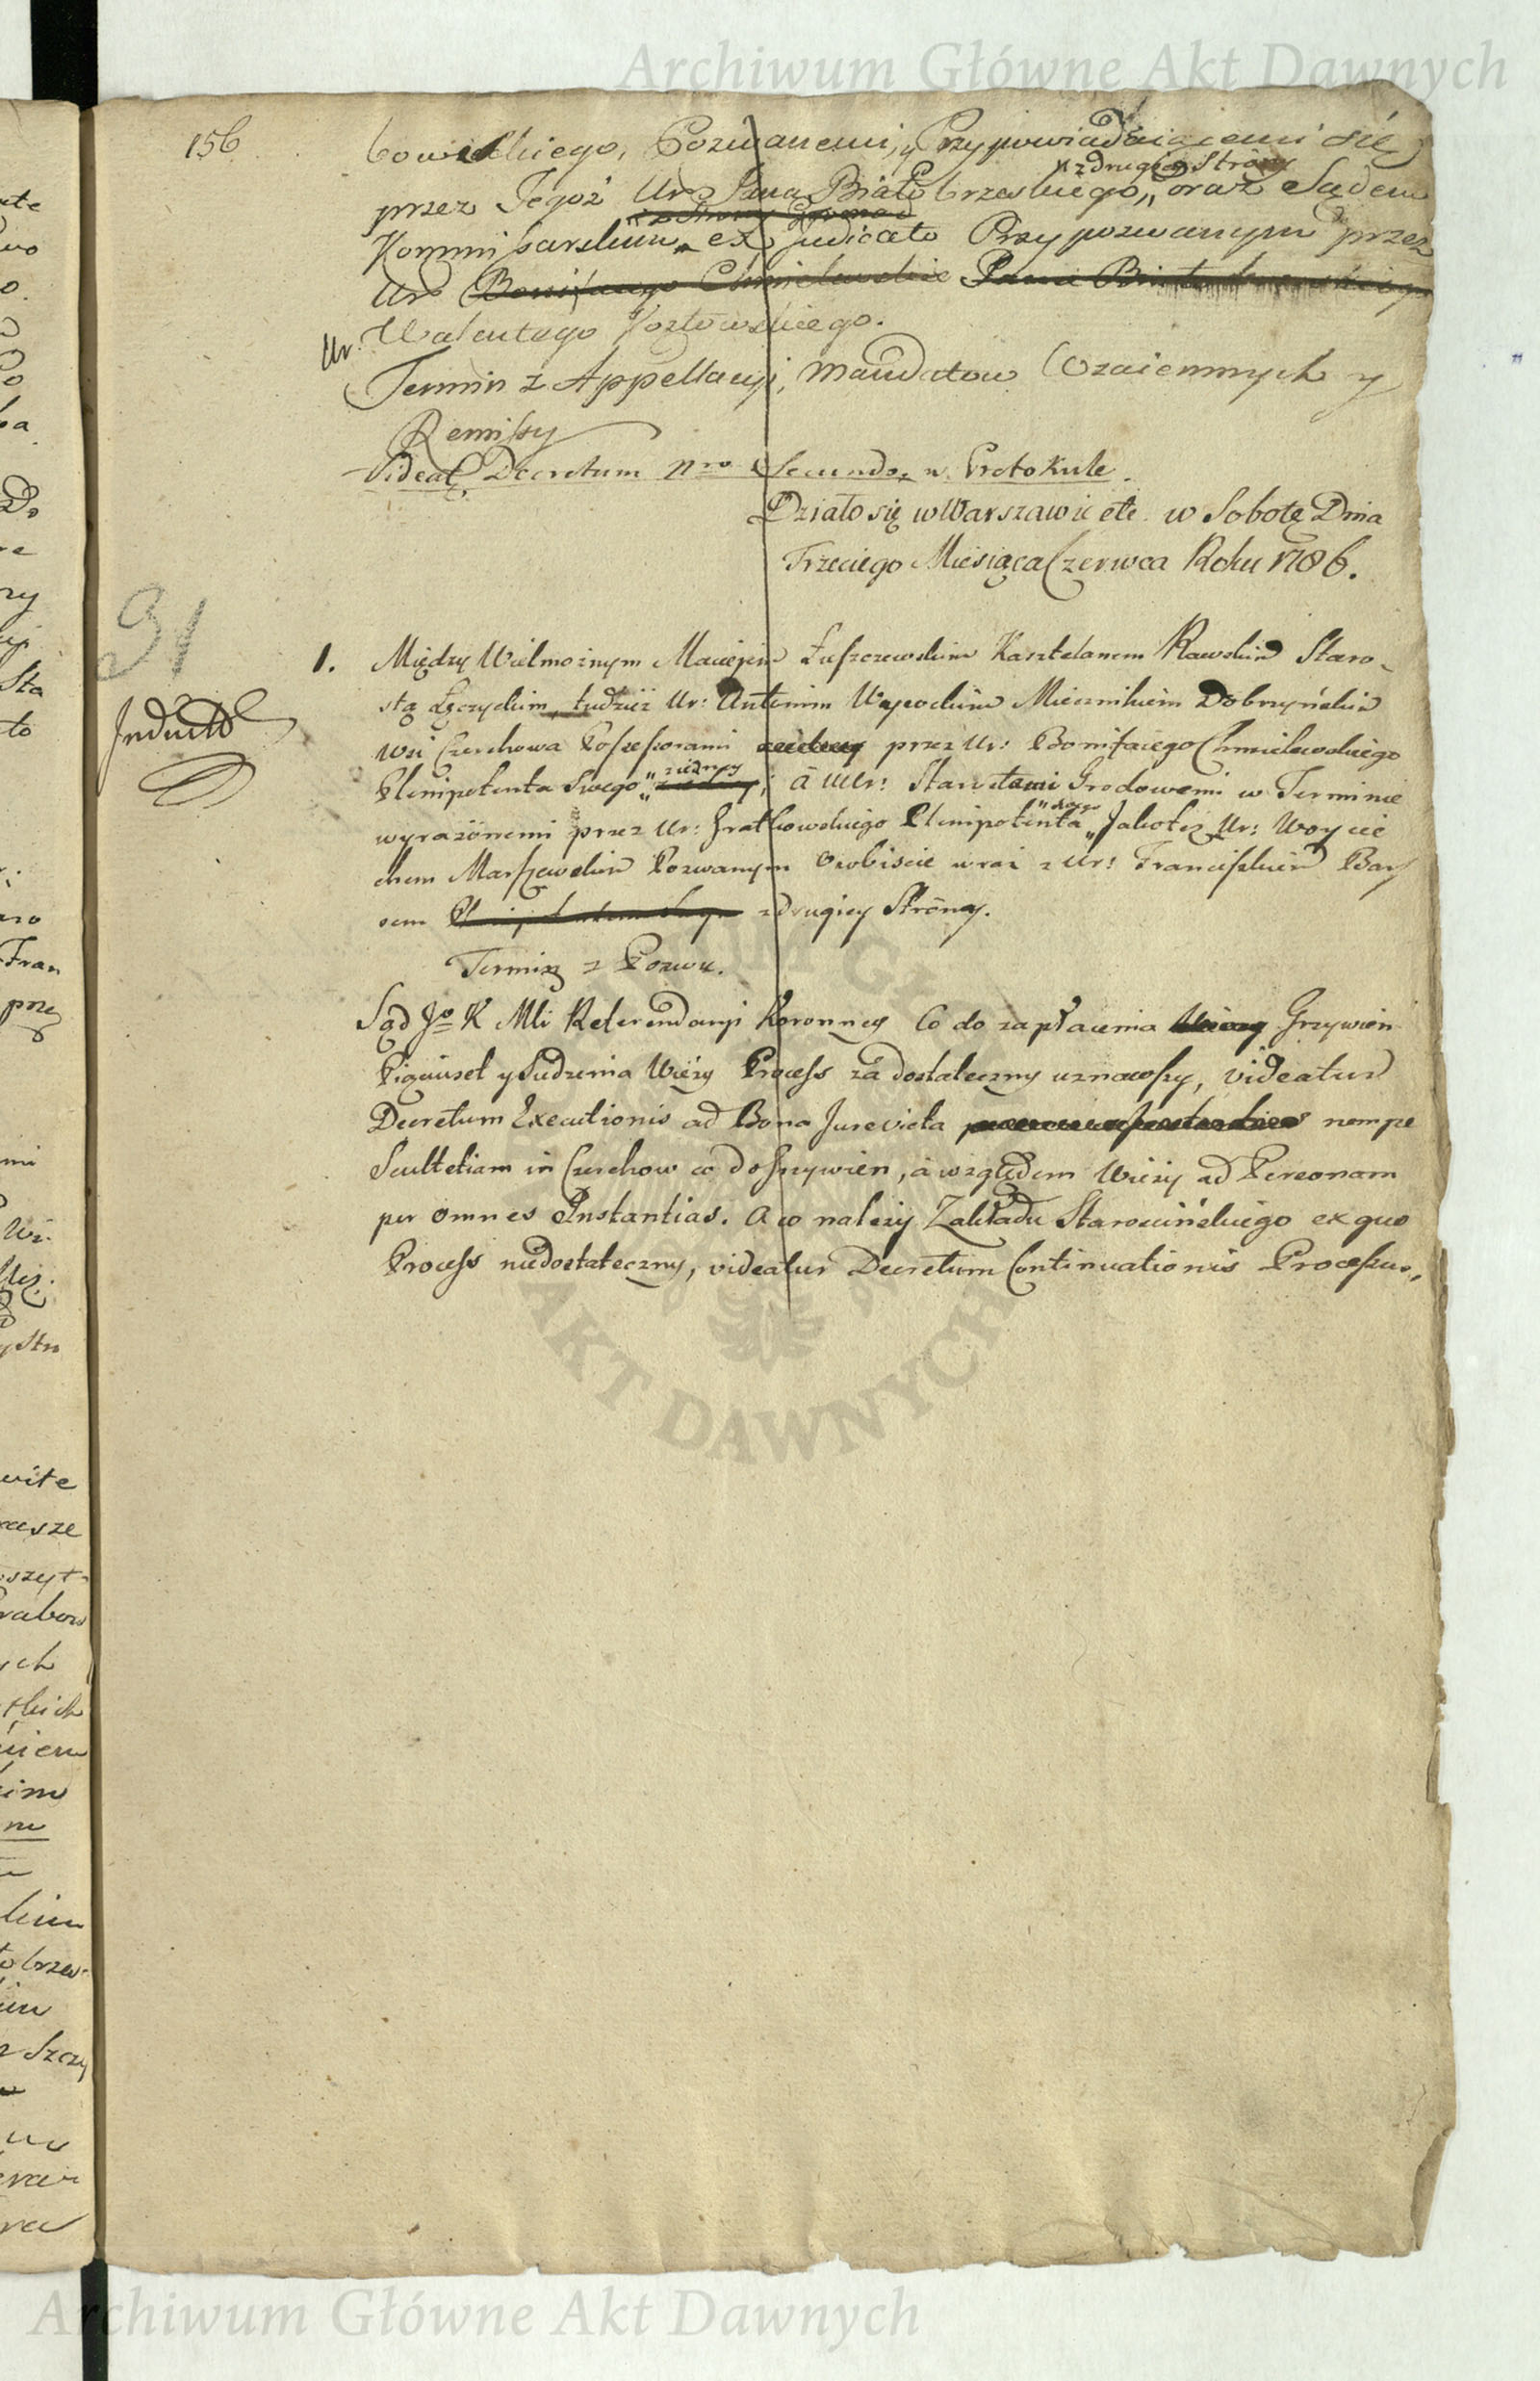 Archiwum Główne Akt Dawnych
156
bowskiego, Pozwanemi, y Przypowiadaiącemi się
z drugiey Strony
przez Tegoż Ur Jana Białobrzeskiego, oraz Sądem
Kommissarskim, ex judicato Przypozwanym przez
Ur Bonifacego Chmielewskie Pana Białobrzeskiego
Ur. Walentego Kozłowskiego.
Termin z Appellacyi, Mandatow Wzaiemnych y
Remissy
Videat. Decretum Nro Secundo, w Protokule.
Działo się w Warszawie etc. w Sobotę Dnia
Trzeciego Miesiąca Czerwca Roku 1786.
91
Inducto
1. Między Wielmożnym Maciejem Łuszczewskim Kasztelanem Rawskim Staro-
stą Łęczyckim, tudzież Ur: Antonim Wąsockim Miecznikiem Dobrzyńskim
Wsi Czerchowa Possessorami przez Ur: Bonifacego Chmielewskiego
z iedney
Plenipotenta Swego, á Ur: Starostami Grodowemi w Terminie
wyrażonemi przez Ur: Gratkowskiego Plenipotenta, Jakoteż Ur: Woycie
chem Marszewskim Pozwanym Osobiscie wraz z Ur: Franciszkiem Bar
sem z drugiey Strony.
Termin z Pozwu.
Sąd Jo K Mci Referendaryi Koronney Co do zapłacenia Grzywien
Pięciuset y Siedzenia Wieży Process za dostateczny uznawszy, videatur
Decretum Executionis ad Bona Jurevicta nempe
Scultetiam in Czerchow co do Grzywien, á względem Wieży ad Personam
per omnes Instantias. A co należy Zakładu Starościńskiego ex quo
Process niedostateczny, videatur Decretum Continuationis Processus,
AKT DAWNYCH
Archiwum Główne Akt Dawnych